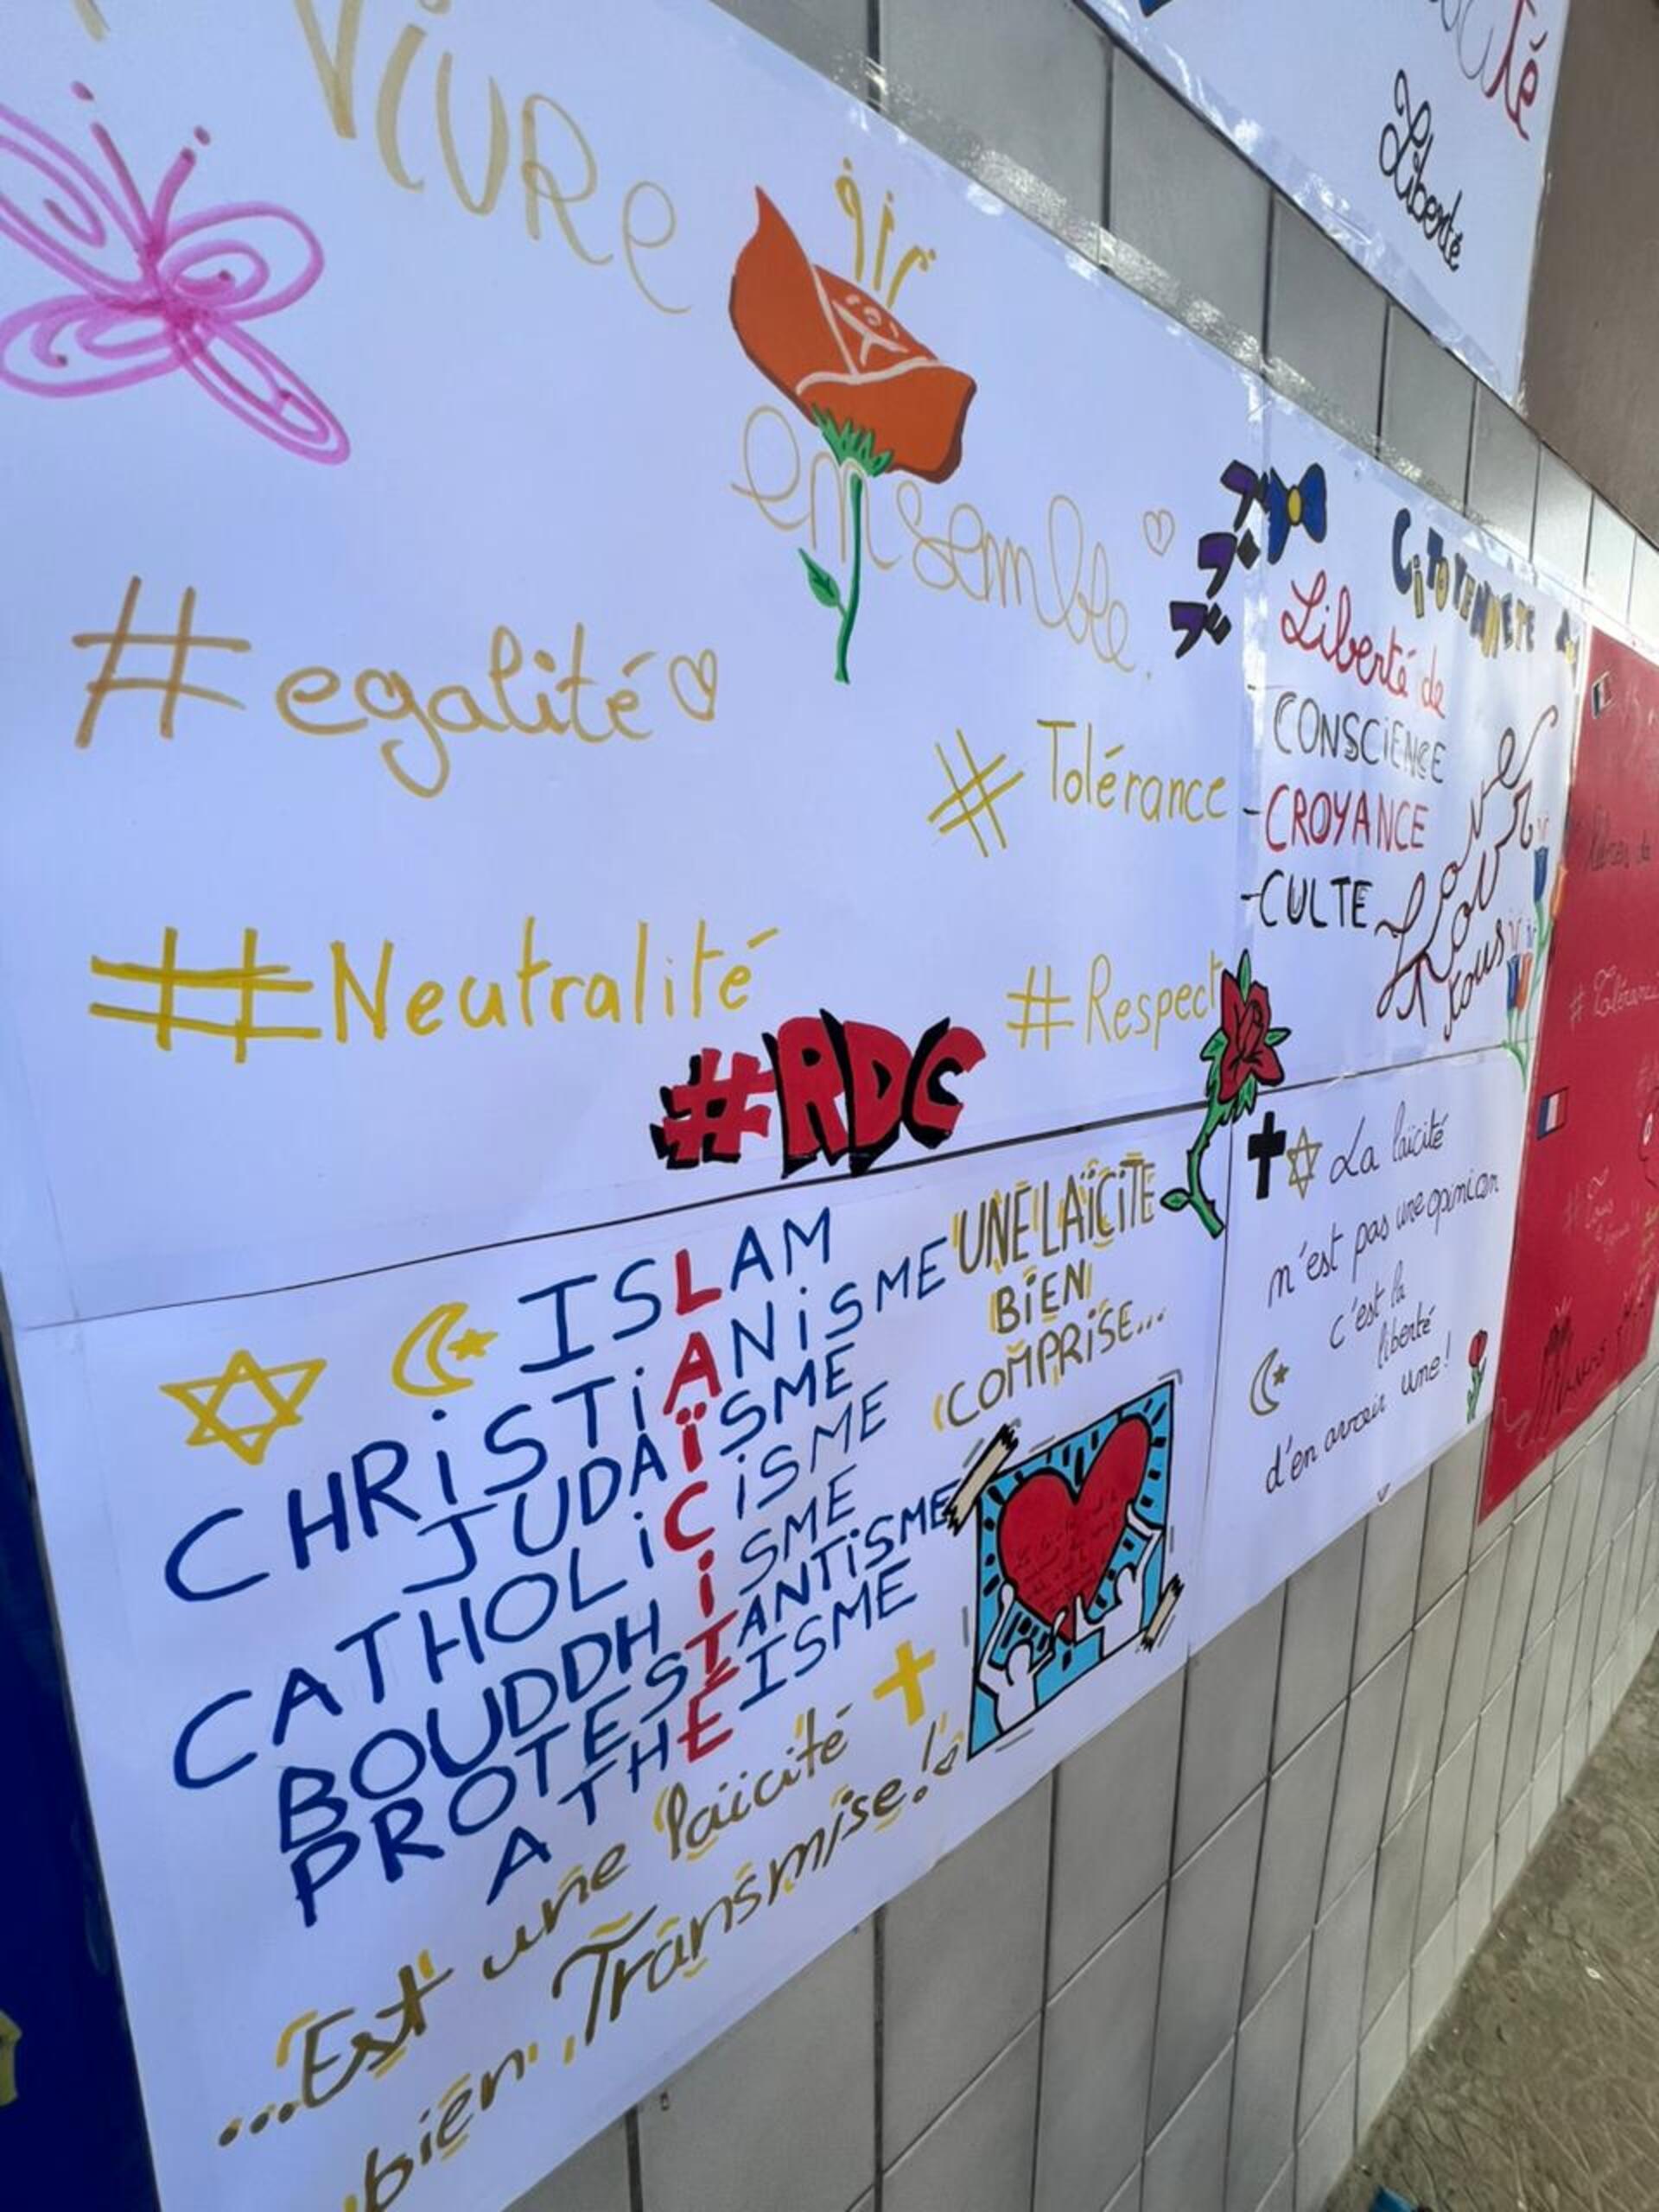 Vivre
ensemble
#egalité
#Tolérance
#Neutralité
#Respect
#RDC
té
Liberté
CITOYENNETE
Liberté de
- CONSCIENCE
- CROYANCE
- CULTE
Love
tous
ISLAM
CHRISTIANISME
JUDAÏSME
CATHOLICISME
BOUDDHISME
PROTESTANTISME
ATHEISME
UNE LAÏCITE
BIEN
COMPRISE...
...Est une laïcité
bien Transmise!
La laïcité
n'est pas une opinion
c'est la
liberté
d'en avoir une!
# Tolérance